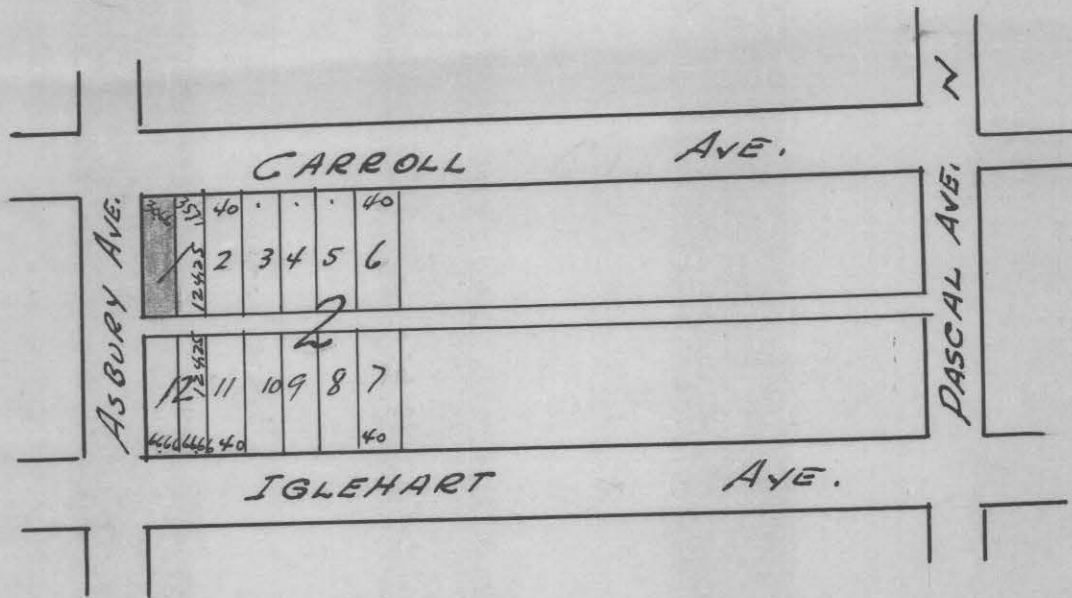 N
CARROLL AVE.
ASBURY AVE.
PASCAL AVE.
40 . . . 40
1 2 3 4 5 6
124.25
2
124.25
12 11 10 9 8 7
40 40
IGLEHART AVE.